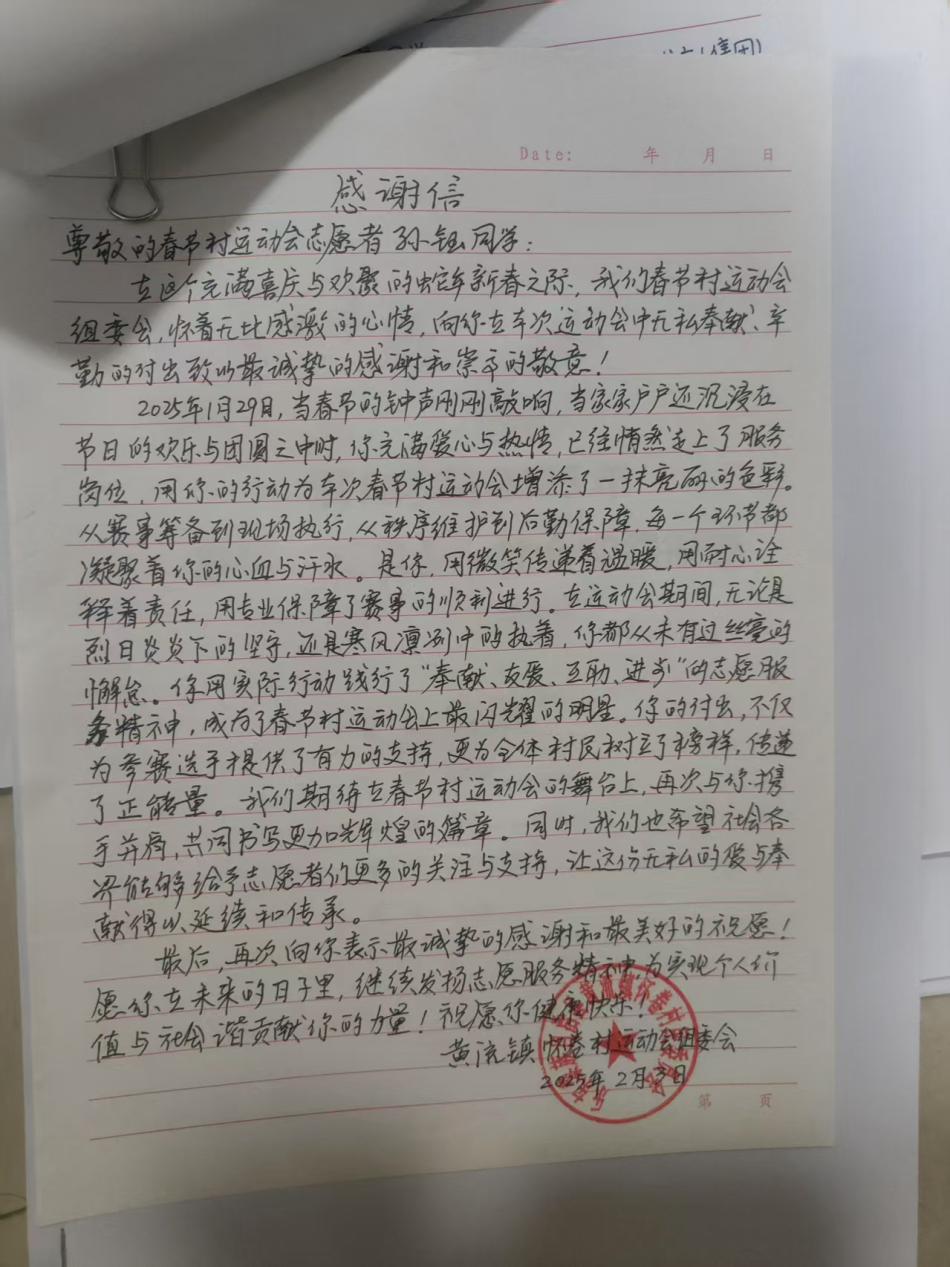 Date: 年 月 日
感谢信
尊敬的春节村运动会志愿者孙钰同学:
在这个充满喜庆与欢聚的蛇年新春之际,我们春节村运动会
组委会,怀着无比感激的心情,向你在本次运动会中无私奉献、辛
勤的付出致以最诚挚的感谢和崇高的敬意!
2025年1月29日,当春节的钟声刚刚敲响,当家家户户还沉浸在
节日的欢乐与团圆之中时,你充满爱心与热情,已经悄然走上了服务
岗位,用你的行动为本次春节村运动会增添了一抹亮丽的色彩。
从赛事筹备到现场执行,从秩序维护到后勤保障,每一个环节都
凝聚着你的心血与汗水。是你,用微笑传递着温暖,用耐心诠
释着责任,用专业保障了赛事的顺利进行。在运动会期间,无论是
烈日炎炎下的坚守,还是寒风凛冽中的执着,你都从未有过丝毫的
懈怠。你用实际行动践行了“奉献、友爱、互助、进步”的志愿服
务精神,成为了春节村运动会上最闪耀的明星。你的付出,不仅
为参赛选手提供了有力的支持,更为全体村民树立了榜样,传递
了正能量。我们期待在春节村运动会的舞台上,再次与你携
手并肩,共同书写更加辉煌的篇章。同时,我们也希望社会各
界能够给予志愿者们更多的关注与支持,让这份无私的爱与奉
献得以延续和传承。
最后,再次向你表示最诚挚的感谢和最美好的祝愿!
愿你在未来的日子里,继续发扬志愿服务精神为实现个人价
值与社会谐贡献你的力量!祝愿你健康快乐!
黄流镇怀卷村运动会组委会
2025年2月3日
第 页